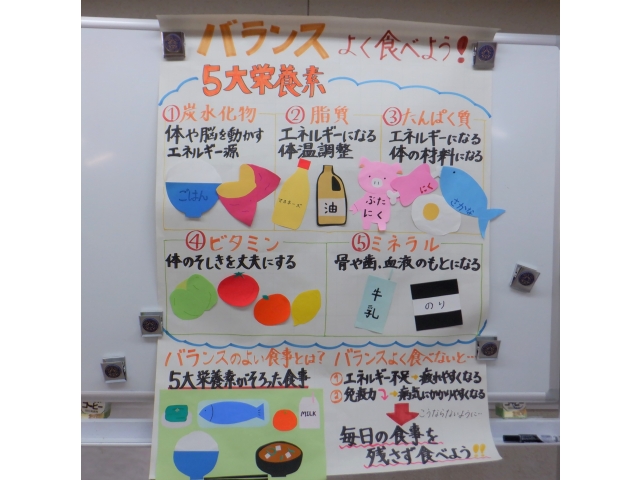 バランスよく食べよう!
5大栄養素
①炭水化物
体や脳を動かす
エネルギー源
ごはん
②脂質
エネルギーになる
体温調整
マヨネーズ
油
③たんぱく質
エネルギーになる
体の材料になる
ぶた
にく
にく
さかな
④ビタミン
体のそしきを丈夫にする
⑤ミネラル
骨や歯、血液のもとになる
牛
乳
のり
バランスのよい食事とは?
5大栄養素がそろった食事
MILK
バランスよく食べないと…
①エネルギー不足→疲れやすくなる
②免疫力⤵→病気にかかりやすくなる
こうならないように…
毎日の食事を
残さず食べよう!!
コーヒー